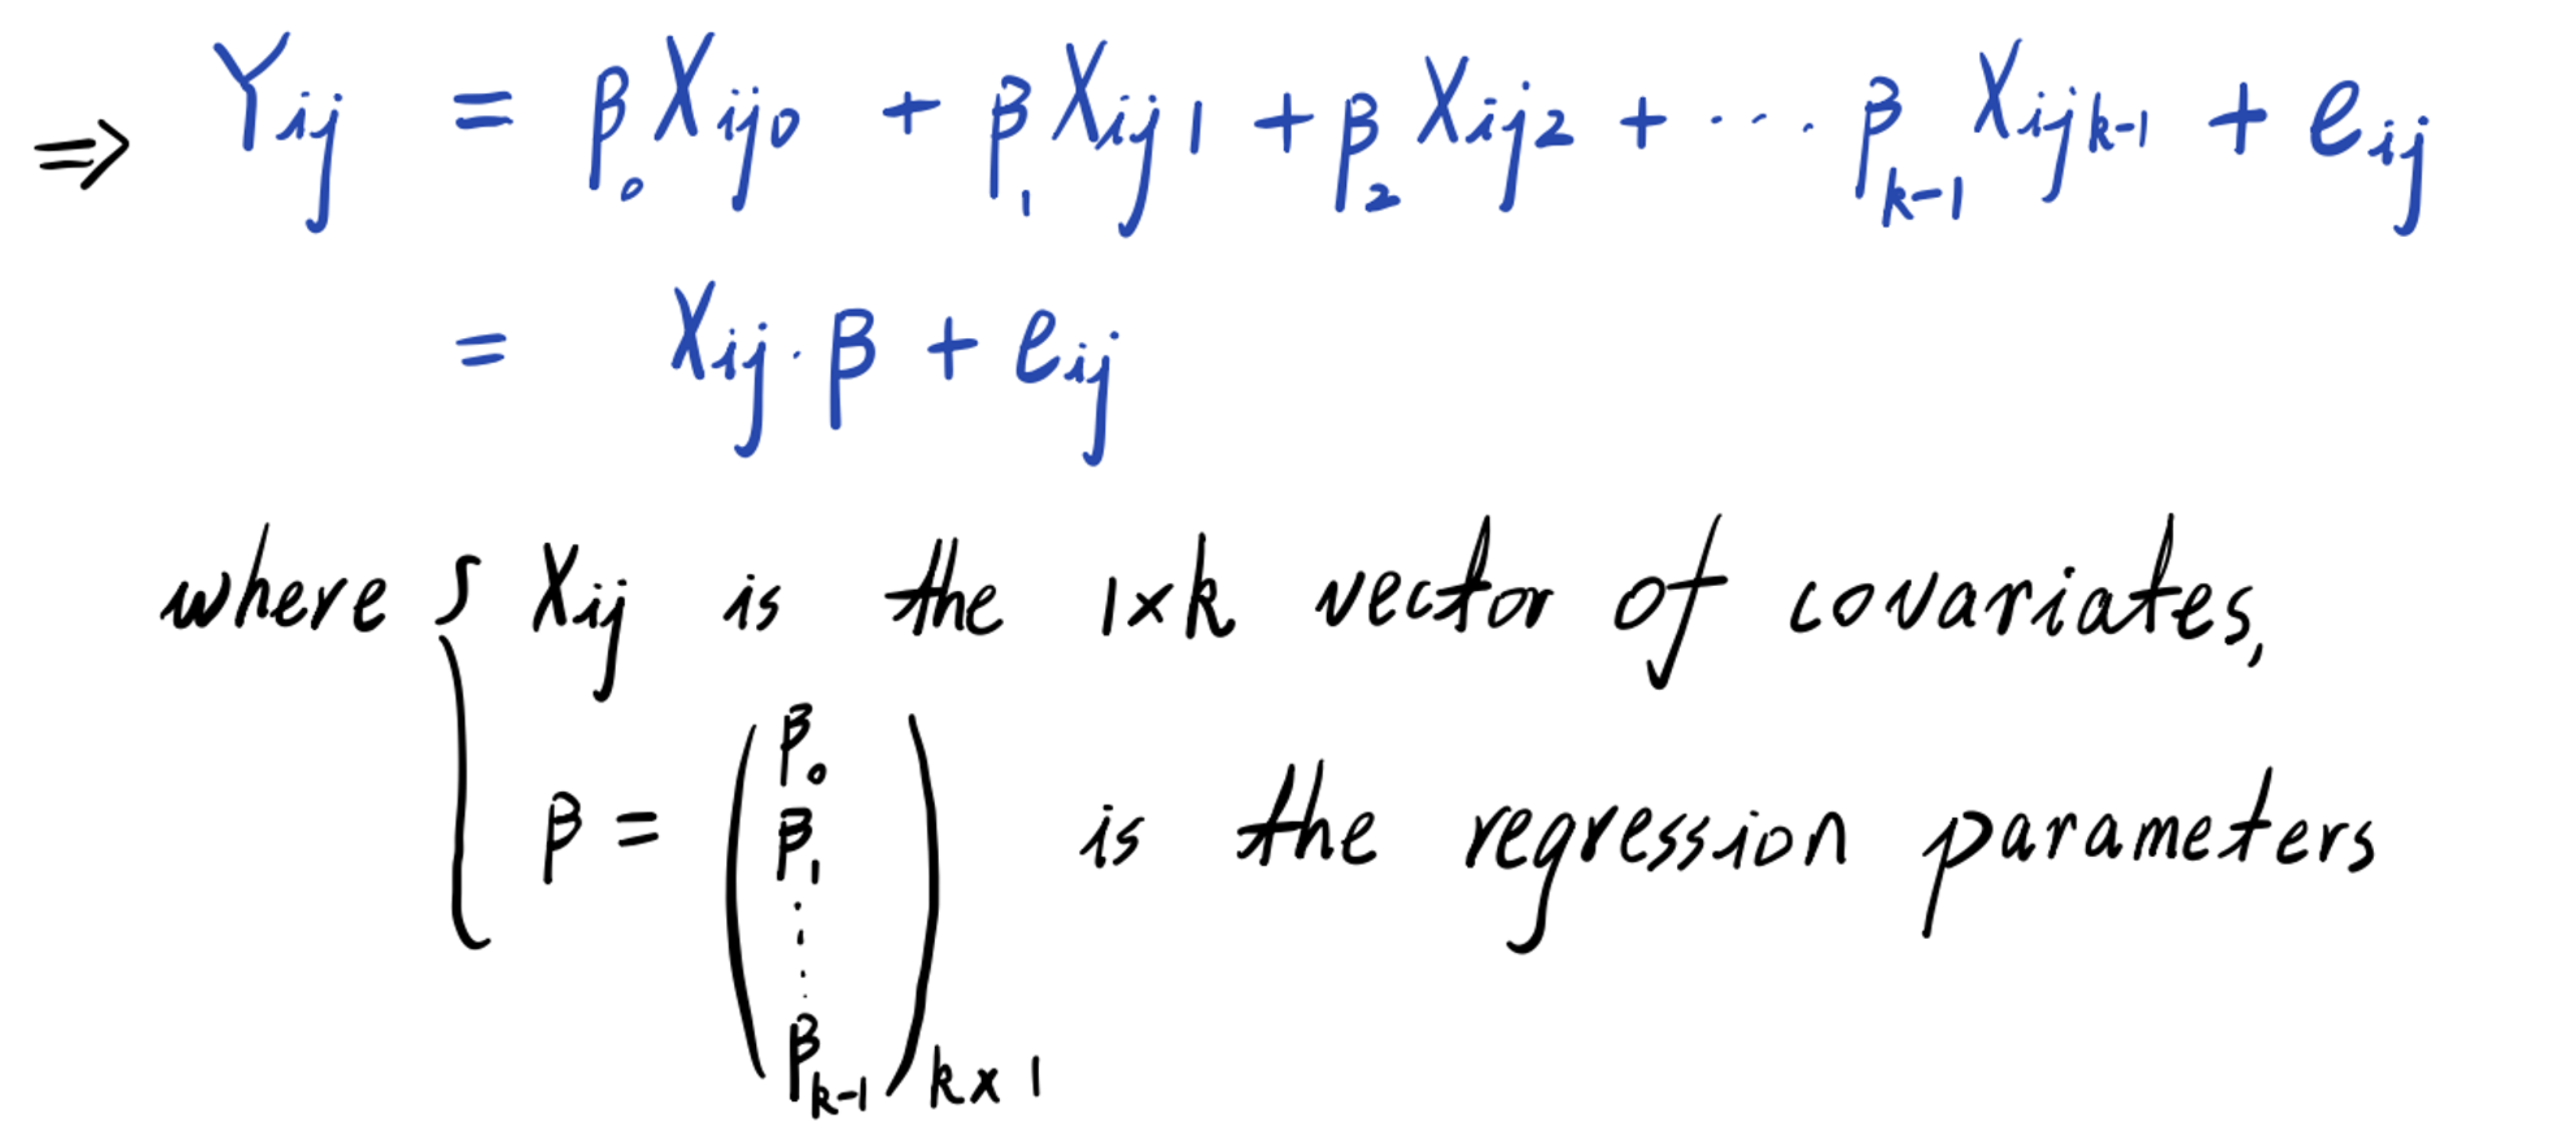 ⇒ Y_{ij} = β_0 X_{ij0} + β_1 X_{ij1} + β_2 X_{ij2} + ··· β_{k-1} X_{ijk-1} + e_{ij}
= X_{ij} · β + e_{ij}
where { X_{ij} is the 1×k vector of covariates,
β = ( β_0 β_1 ⋮ β_{k-1} )_{k×1} is the regression parameters